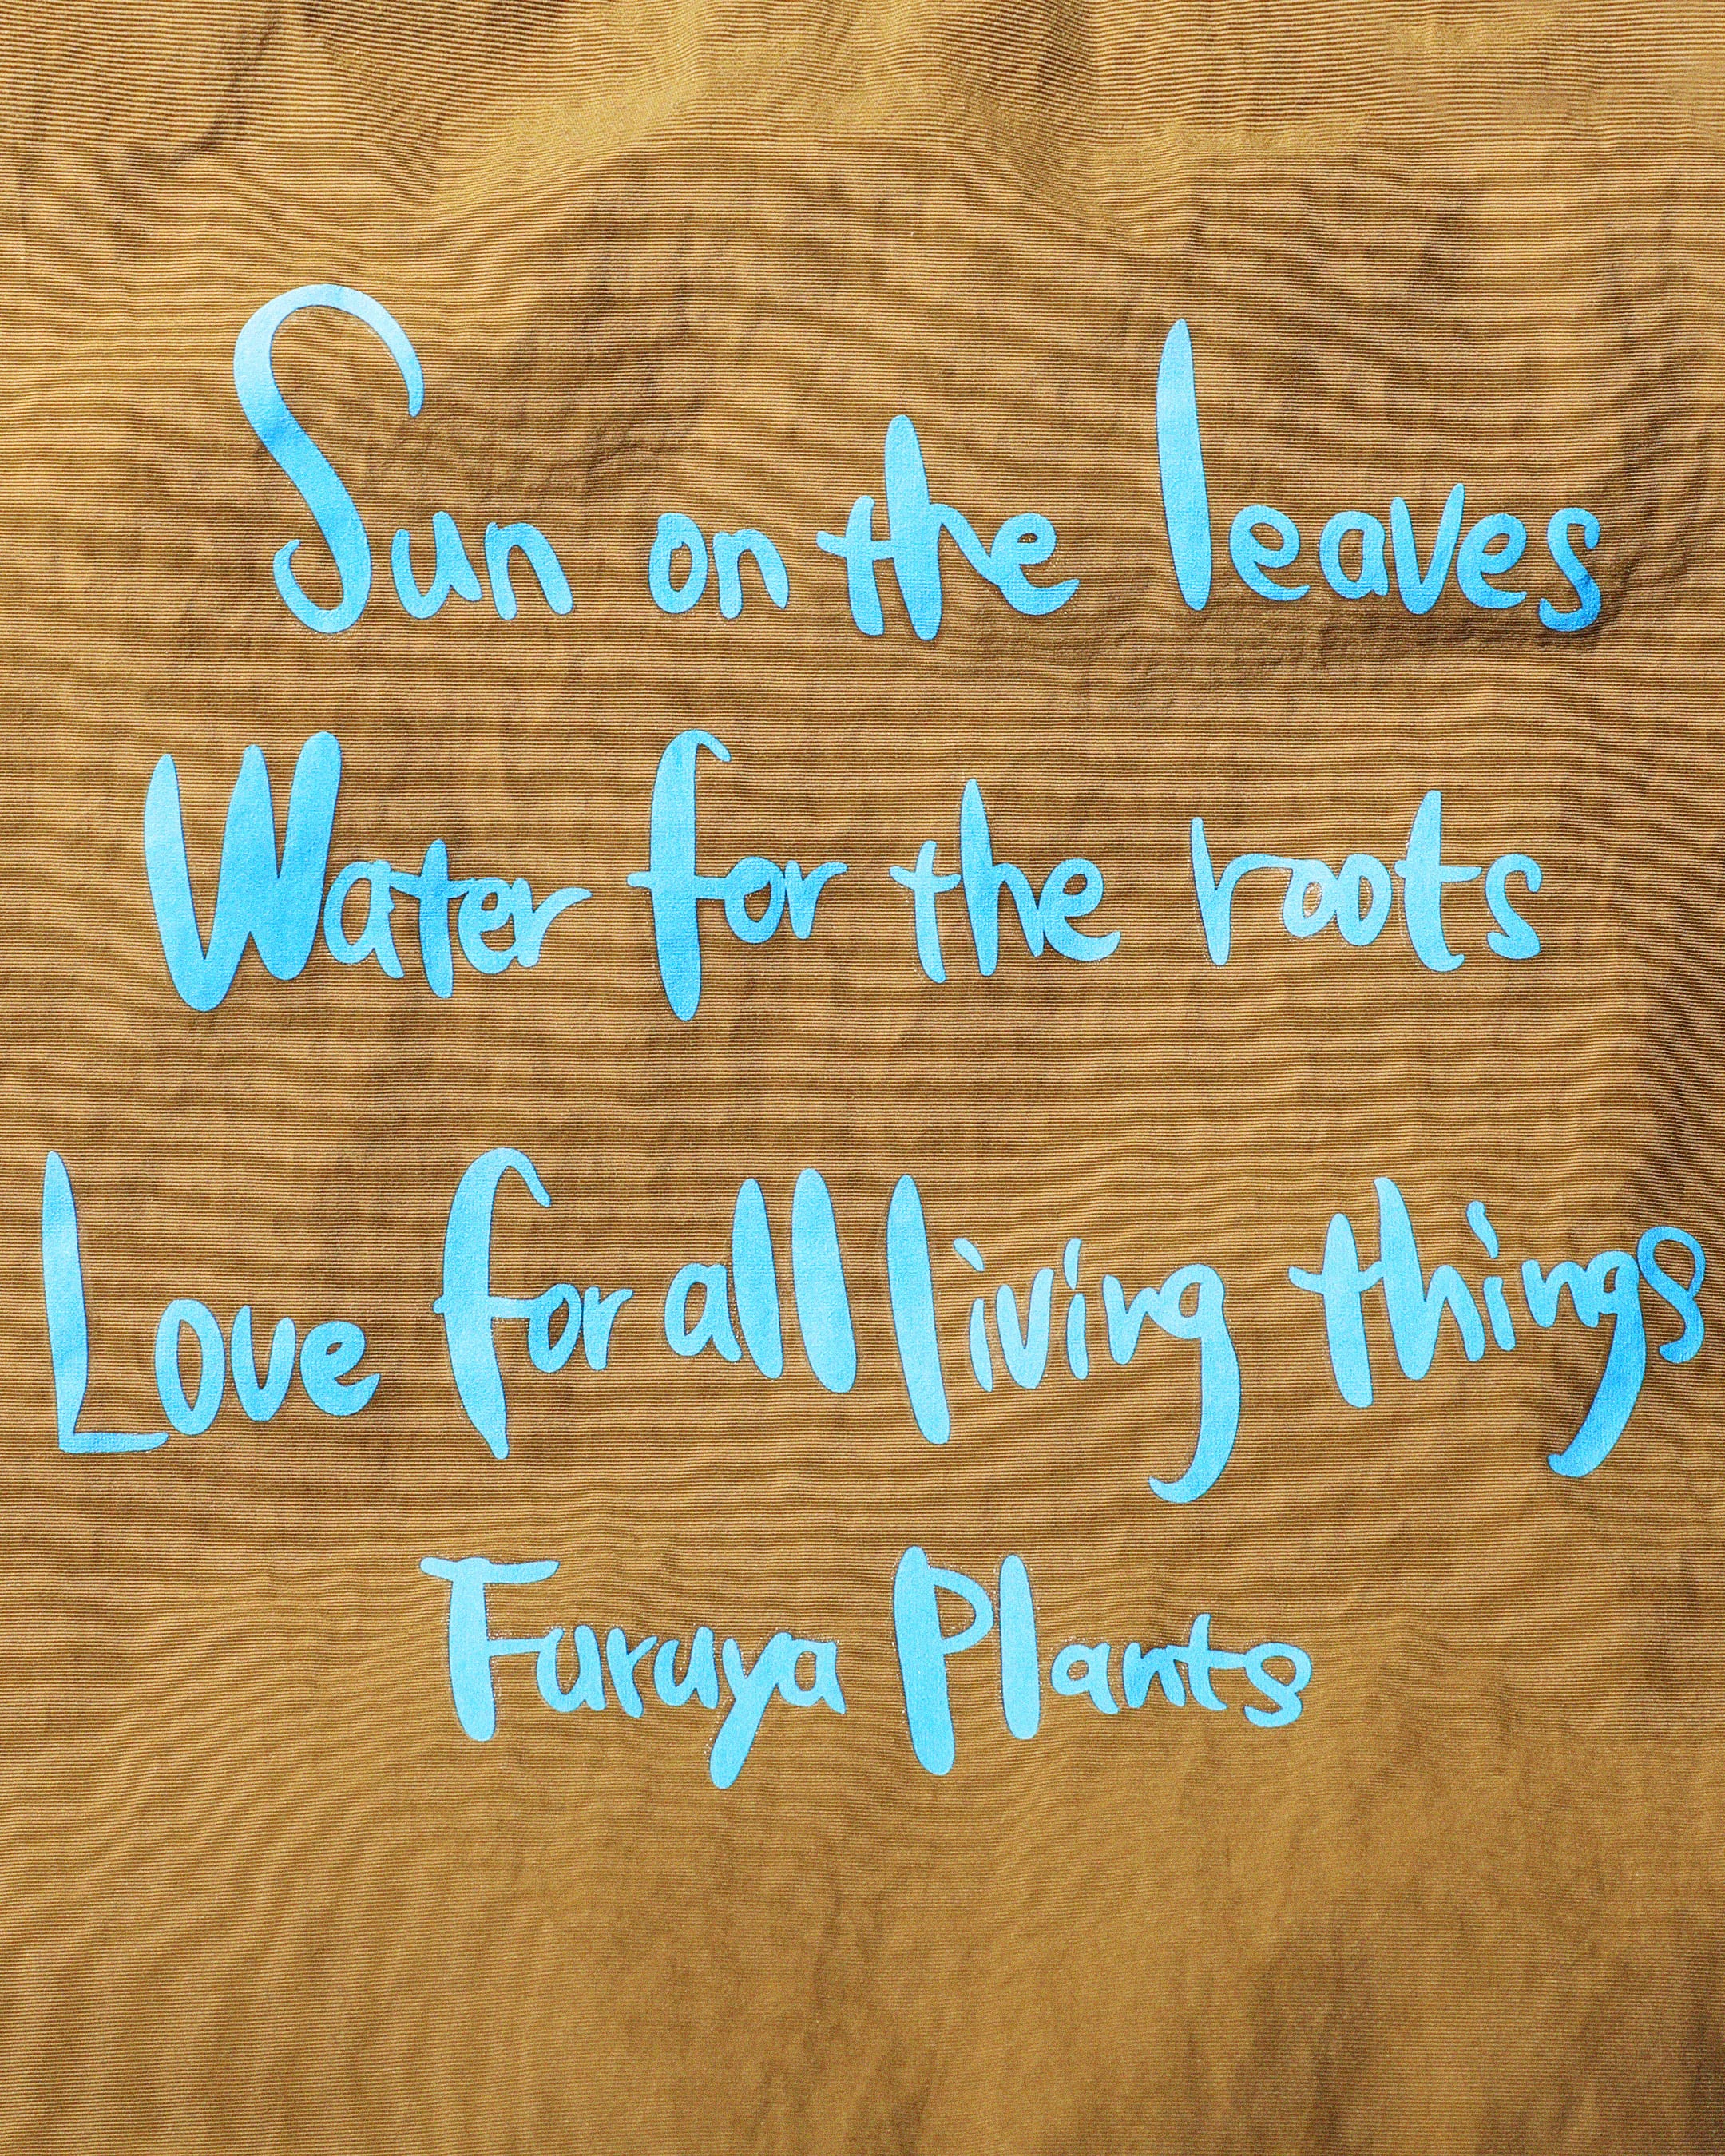 Sun on the leaves
Water for the roots
Love for all living things
Furuya Plants